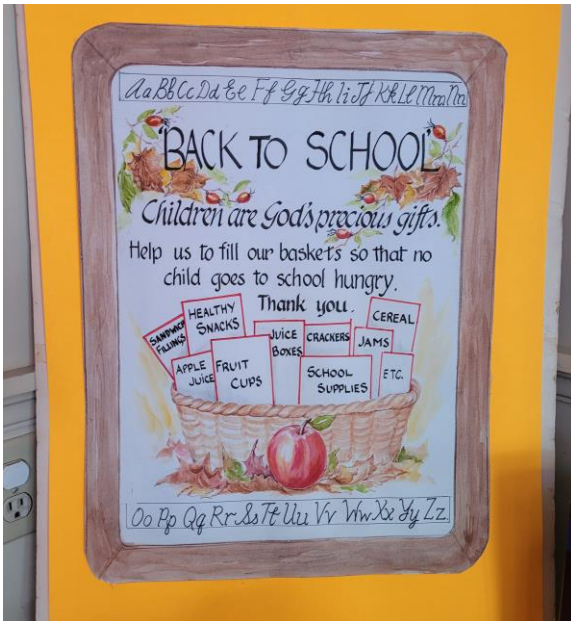 Aa Bb Cc Dd Ee Ff Gg Hh Ii Jj Kk Ll Mm Nn
'BACK TO SCHOOL'
Children are God's precious gifts.
Help us to fill our baskets so that no
child goes to school hungry.
Thank you.
HEALTHY
SNACKS
CEREAL
SANDWICH
FILLINGS
JUICE
BOXES
CRACKERS
JAMS
APPLE
JUICE
FRUIT
CUPS
SCHOOL
SUPPLIES
ETC.
Oo Pp Qq Rr Ss Tt Uu Vv Ww Xx Yy Zz